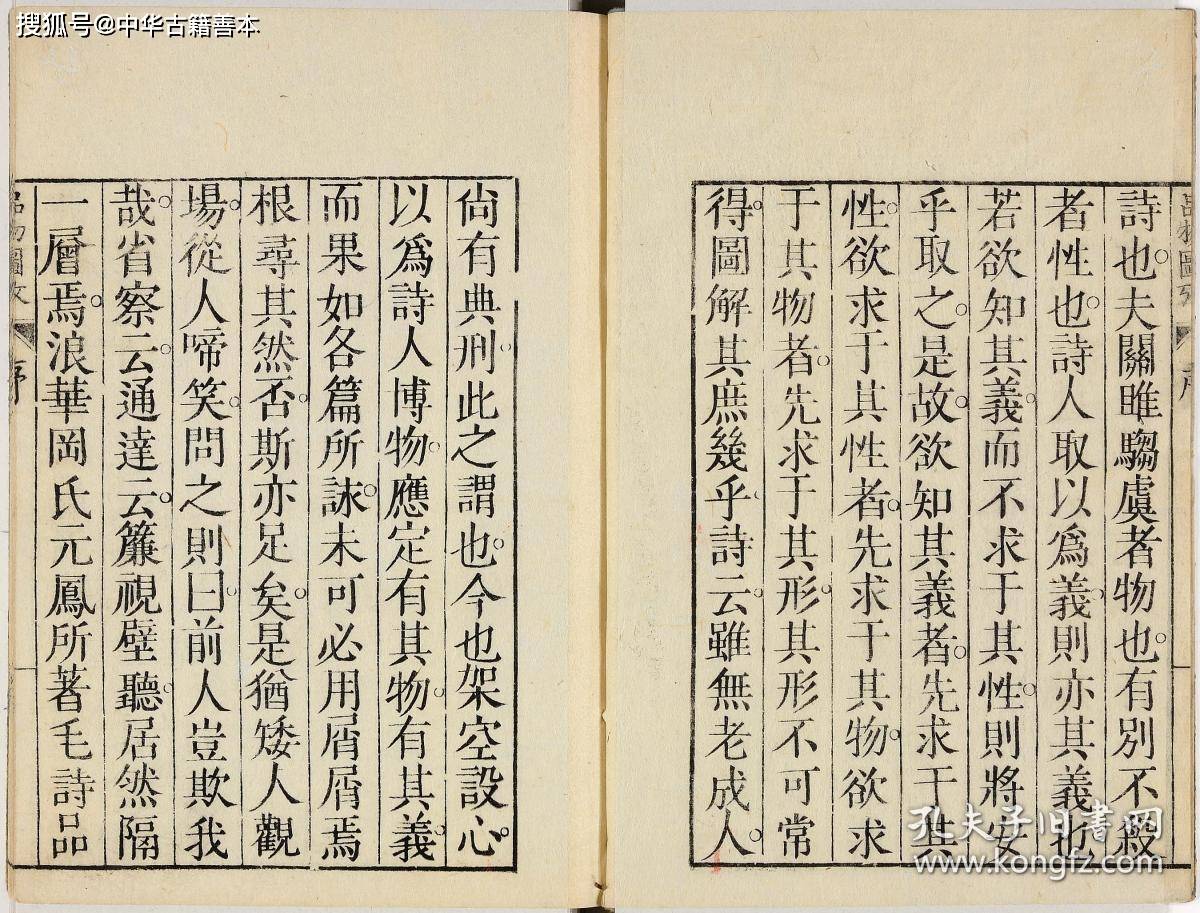 搜狐号@中华古籍善本
詩也夫關雎騶虞者物也有別不殺
者性也詩人取以爲義則亦其義也
若欲知其義而不求于其性則將安
乎取之是故欲知其義者先求于其
性欲求于其性者先求于其物欲求
于其物者先求于其形其形不可常
得圖解其庶幾乎詩云雖無老成人
尙有典刑此之謂也今也架空設心
以爲詩人博物應定有其物有其義
而果如各篇所詠未可必用屑屑焉
根尋其然否斯亦足矣是猶矮人觀
場從人啼笑問之則曰前人豈欺我
哉省察云通達云簾視壁聽居然隔
一層焉浪華岡氏元鳳所著毛詩品
品物圖攷 序
孔夫子旧書网
www.kongfz.com